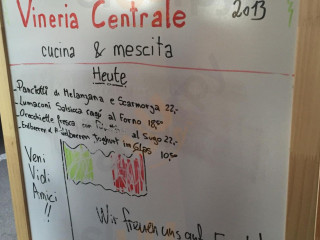 Vineria Centrale
2013
cucina & mescita
Heute
- Panciotti di Melanzana e Scamorza 22,-
- Lumaconi Salsiccia ragú al Forno 18.50
- Orecchiette fresca al Sugo 22,-
- Joghurt im Glas 10,50
Veni
Vidi
Amici
!!
Wir freuen uns auf